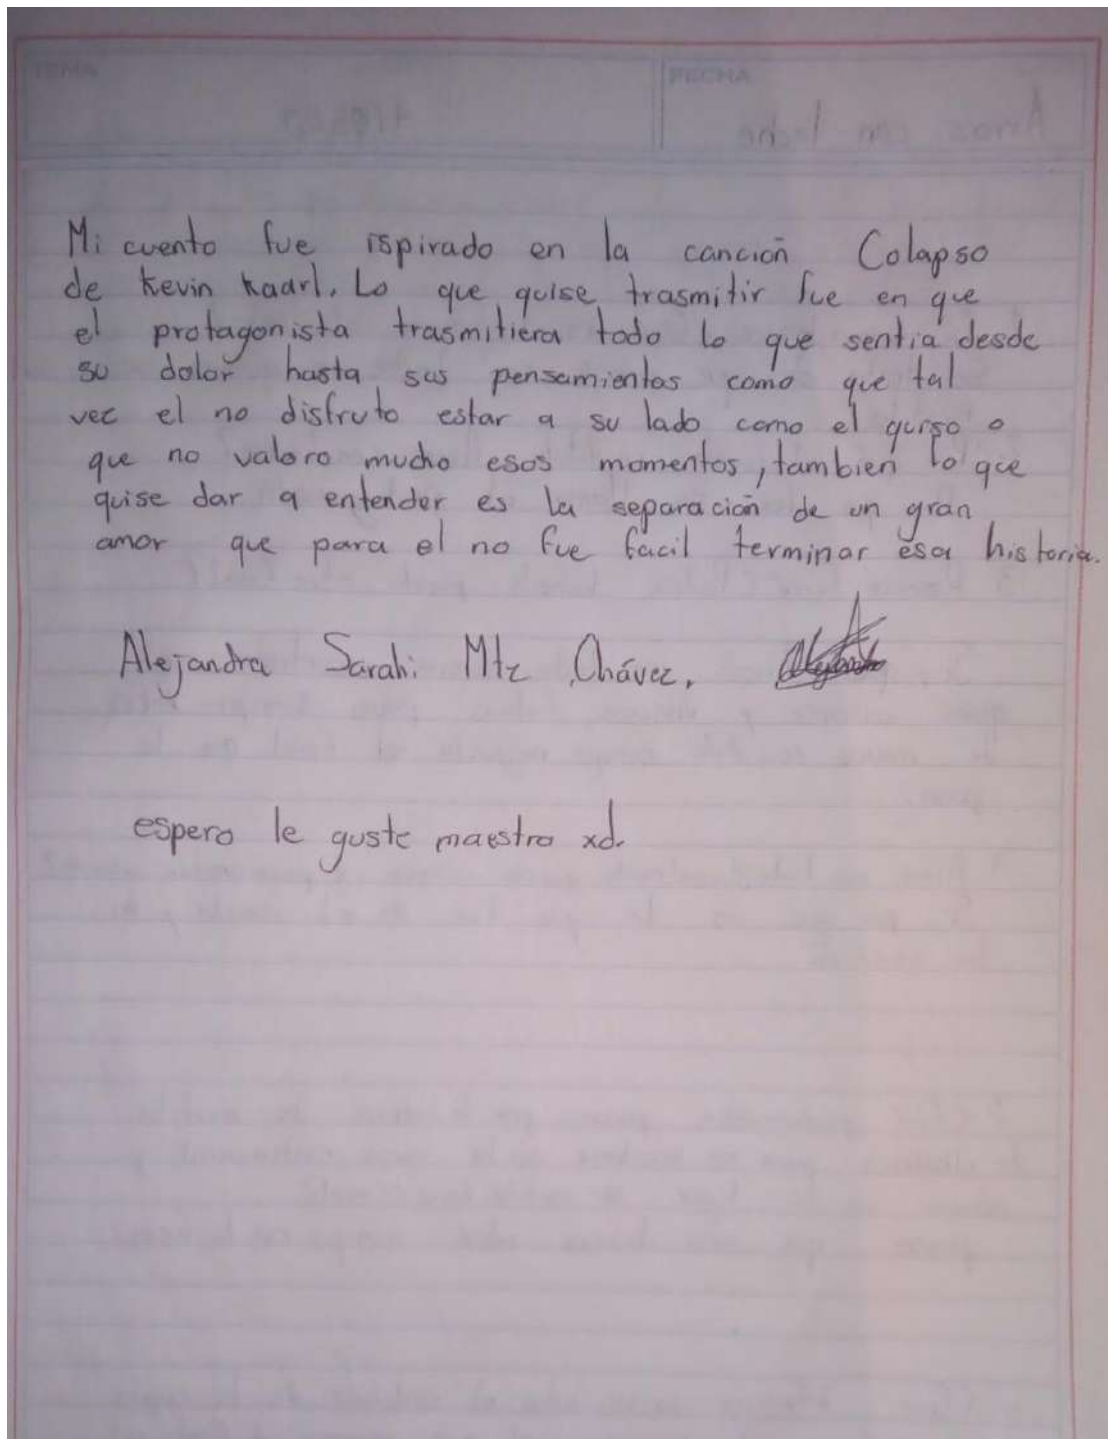 TEMA
FECHA
Mi cuento fue ispirado en la canción Colapso
de Kevin Kaarl. Lo que quise trasmitir fue en que
el protagonista trasmitiera todo lo que sentia desde
su dolor hasta sus pensamientos como que tal
vez el no disfruto estar a su lado como el quiso o
que no valoro mucho esos momentos, tambien lo que
quise dar a entender es la separación de un gran
amor que para el no fue facil terminar esa historia.
Alejandra Sarahi Mtz Chávez.
espero le guste maestro xd.